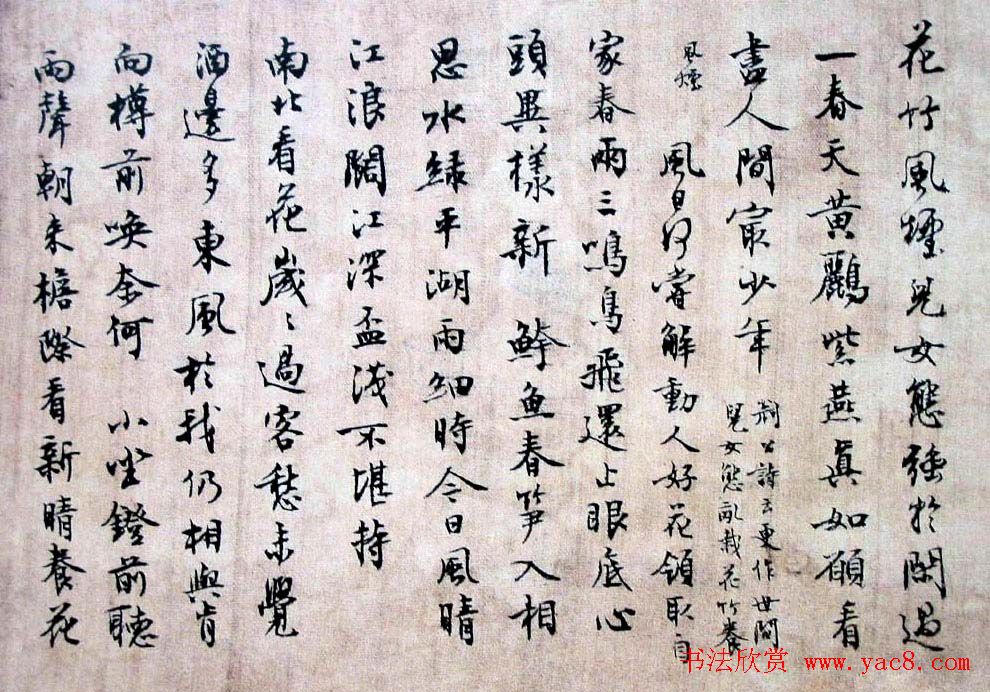 花竹風煙兒女態強於閑過
一春天黃鸝紫燕真如願看
盡人間㝡少年
荊公詩云更作世間
兒女態亂栽花竹養
風煙
風日何嘗解動人好花領取自
家春兩三鳴鳥飛還止眼底心
頭異樣新 鮮魚春笋入相
思水緑平湖雨細時今日風晴
江浪闊江深盃淺不堪持
南北看花歲〻過客愁未覺
酒邊多東風於我仍相與肯
向樽前喚奈何 小坐鐙前聽
雨聲朝來檐際看新晴養花
书法欣赏 www.yac8.com